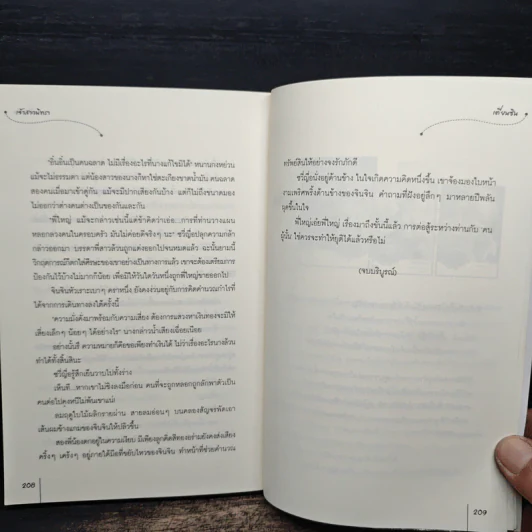 เจ้าสาวมังกร
"ยิ่นยิ่นเป็นคนฉลาด ไม่มีเรื่องอะไรที่นางแก้ไขมิได้ หนานกงหย่วน
แม้จะไม่ธรรมดา แต่น้องสาวของนางก็หาใช่ตะเกียงขาดน้ำมัน คนฉลาด
สองคนเมื่อมาเข้าคู่กัน แม้จะมีปากเสียงกันบ้าง แต่ก็ไม่ถึงขนาดมอง
ไม่ออกว่าต่างคนต่างเป็นของกันและกัน
"พี่ใหญ่ แม้จะกล่าวเช่นนี้แต่ข้าคิดว่าเอ่อ...การที่ท่านวางแผน
หลอกลวงคนในครอบครัว มันไม่ค่อยดีจริงๆ นะ"
กล่าวออกมา บรรดาพี่สาวล้วนถูกแต่งออกไปจนหมดแล้ว ฉะนั้นยามนี้
วิกฤตการณ์โสดใส่ศีรษะของเขาอย่างเป็นทางการแล้ว เขาจะต้องเตรียมการ
ป้องกันไว้บ้างไม่มากก็น้อย เพื่อมิให้วันใดวันหนึ่งถูกพี่ใหญ่ขายออกไป
จินจินหัวเราะเบาๆ คราหนึ่ง ยังคงง่วนอยู่กับการคิดคำนวณกำไรที่
ได้จากการเดินทางลงใต้ครั้งนี้
"ความมั่งคั่งมาพร้อมกับความเสี่ยง ต้องการแสวงหาเงินทองจะมิให้
เสี่ยงเล็กๆ น้อยๆ ได้อย่างไร" นางกล่าวน้ำเสียงเฉื่อยเนือย
อย่างนั้นรึ ความหมายก็คือขอเพียงทำเงินได้ ไม่ว่าเรื่องอะไรนางล้วน
ทำได้ทั้งสิ้นสินะ
รู้สึกเย็นวาบไปทั้งร่าง
เห็นที...หากเขาไม่ชิงลงมือก่อน คนที่จะถูกหลอกถูกลักพาตัวเป็น
คนต่อไปคงหนีไม่พ้นเขาแน่!
ลมฤดูใบไม้ผลิกรายผ่าน สายลมอ่อนๆ บนคลองสัญจรพัดเอา
เส้นผมข้างแก้มของจินจินให้ปลิวขึ้น
สองพี่น้องตกอยู่ในความเงียบ มีเพียงลูกคิดสีทองอร่ามยังคงส่งเสียง
ดริ๊งๆ เคร้งๆ อยู่ภายใต้มือที่ขยับไหวของจินจิน ทำหน้าที่ช่วยคำนวณ
208
เตี่ยนซิน
ทรัพย์สินให้อย่างจงรักภักดี
นั่งอยู่ด้านข้าง ในใจเกิดความคิดหนึ่งขึ้น เขาจ้องมองใบหน้า
งามเพริศพริ้งด้านข้างของจินจิน คำถามที่ฝังอยู่ลึกๆ มาหลายปีพลัน
ผุดขึ้นในใจ
พี่ใหญ่เอ๋ยพี่ใหญ่ เรื่องมาถึงขั้นนี้แล้ว การต่อสู้ระหว่างท่านกับ 'คน
ผู้นั้น' ใช่ควรจะทำให้ยุติได้แล้วหรือไม่
(จบบริบูรณ์)
209